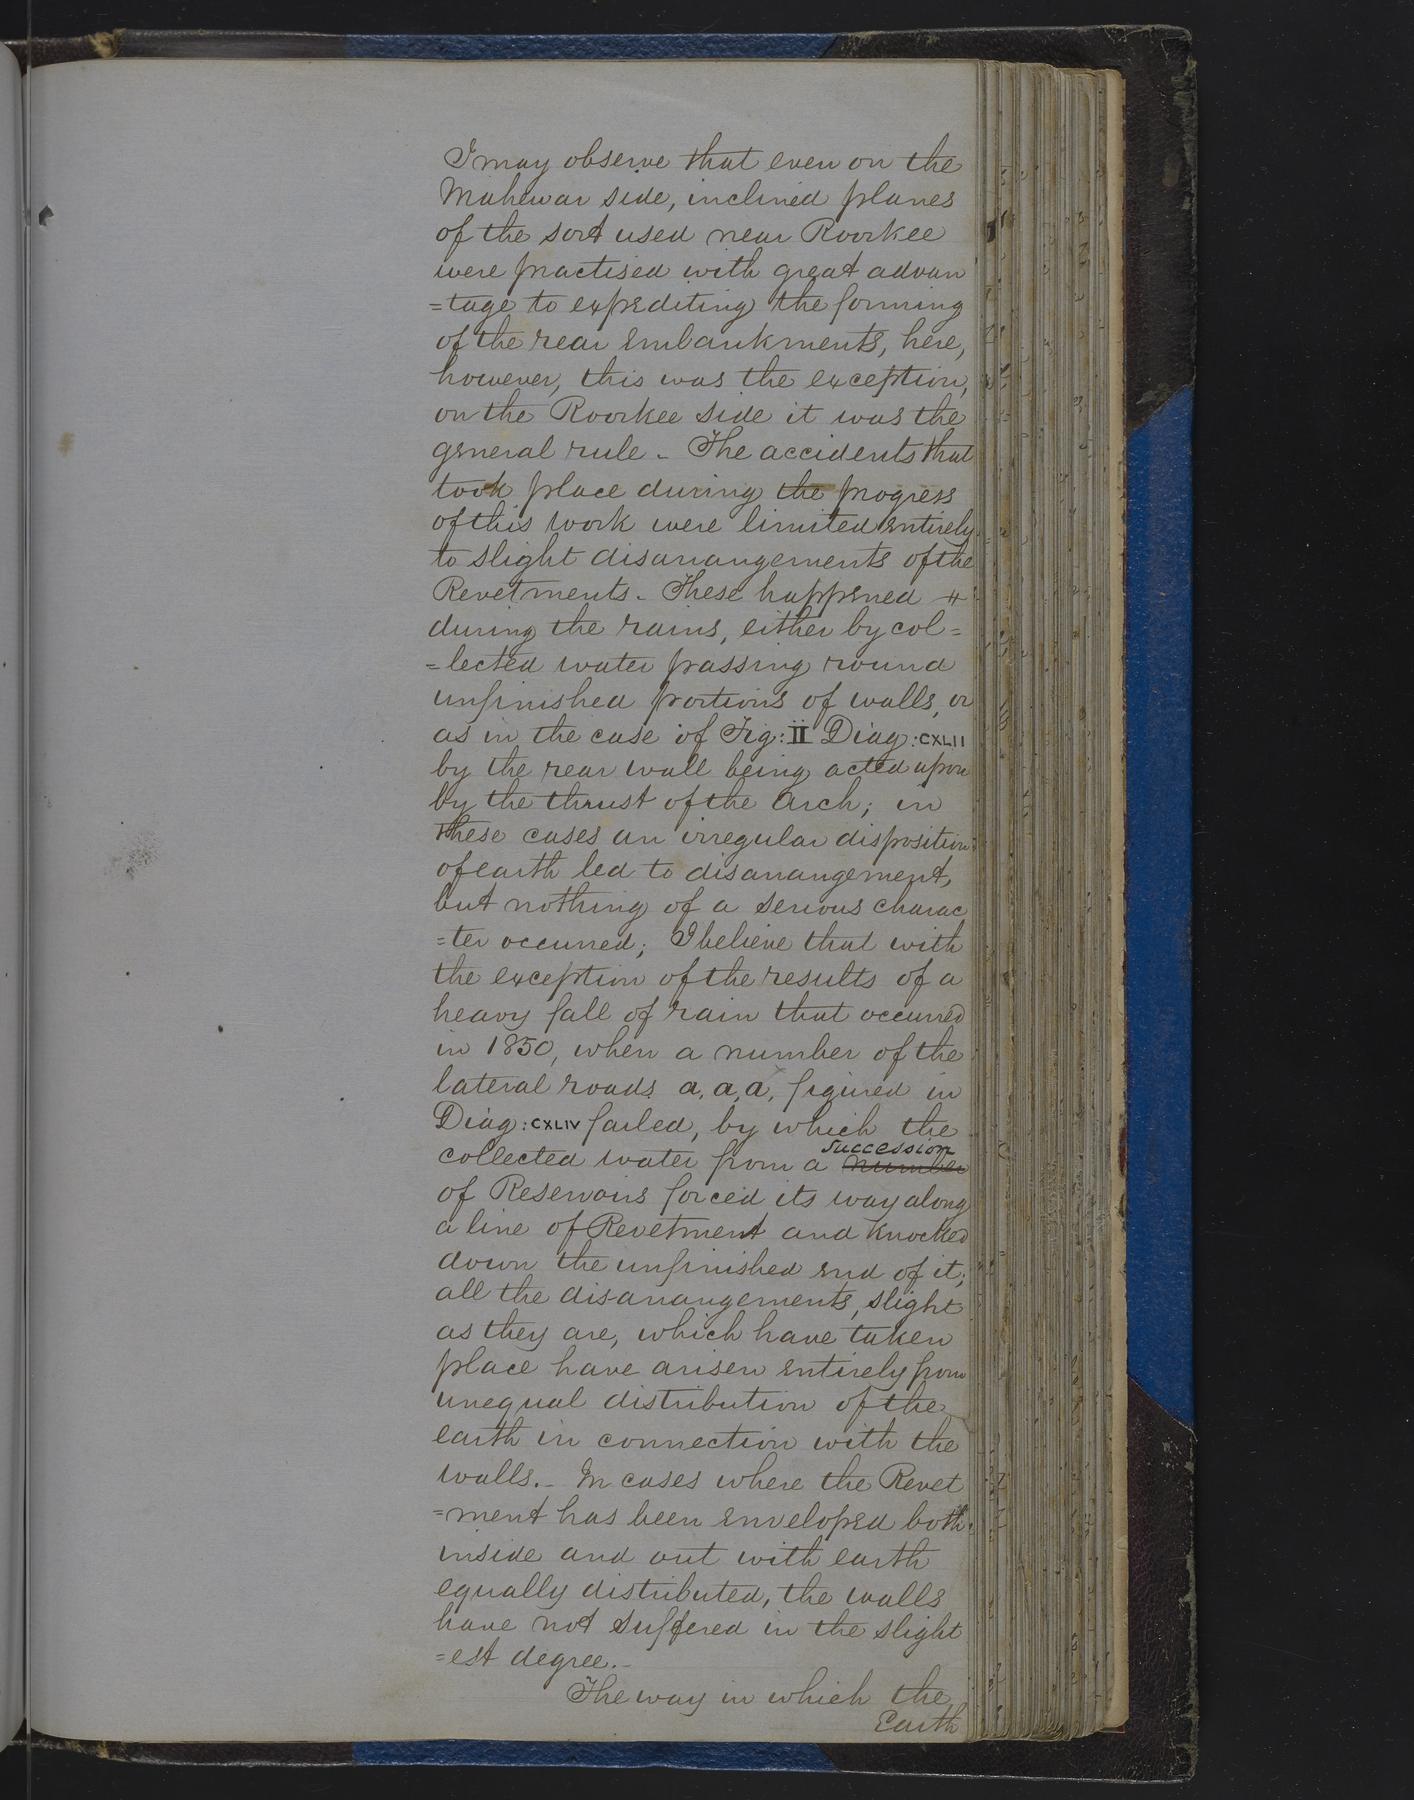 I may observe that even on the
Mahewar side, inclined planes
of the sort used near Roorkee
were practised with great advan
=tage to expediting the forming
of the rear embankments, here,
however, this was the exception,
on the Roorkee side it was the
general rule - The accidents that
took place during the progress
of this work were limited entirely
to slight disarrangements of the
Revetments - These happened
during the rains, either by col=
=lected water passing round
unfinished portions of walls, or
as in the case of Fig: II Diag: CXLII
by the rear wall being acted upon
by the thrust of the Arch; in
these cases an irregular disposition
of earth led to disarrangement,
but nothing of a serious charac
=ter occurred; I believe that with
the exception of the results of a
heavy fall of rain that occurred
in 1850, when a number of the
lateral roads a, a, a, figured in
Diag: CXLIV failed, by which the
succession
collected water from a number
of Reservoirs forced its way along
a line of Revetment and knocked
down the unfinished end of it;
all the disarrangements, slight
as they are, which have taken
place have arisen entirely from
unequal distribution of the
earth in connection with the
walls. - In cases where the Revet
=ment has been enveloped both
inside and out with earth
equally distributed, the walls
have not suffered in the slight
=est degree. -
The way in which the
Earth